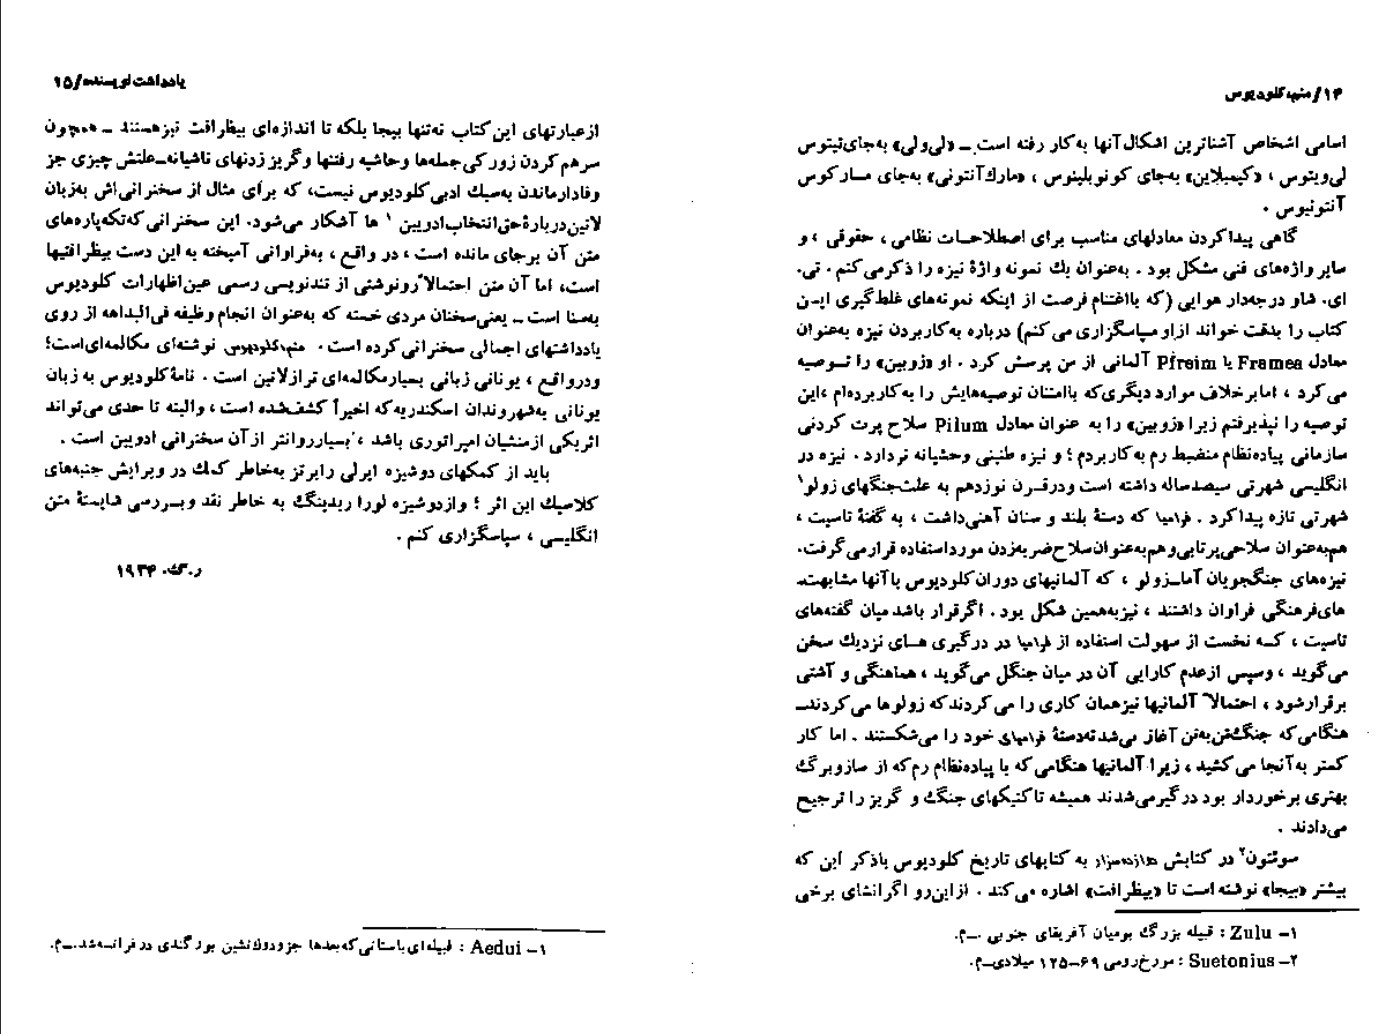 ۱۴/منم، کلودیوس
اسامی اشخاص آشناترین اشکال آنها به‌کار رفته است ـ «لی‌ولی» به‌جای تیتوس
لی‌ویتوس ، «کیمبلاین» به‌جای کونوبلینوس ، «مارك آنتونی» به‌جای مارکوس
آنتونیوس .
گاهی پیدا کردن معادلهای مناسب برای اصطلاحات نظامی ، حقوقی ، و
سایر واژه‌های فنی مشکل بود . به‌عنوان يك نمونه واژهٔ نیزه را ذکر می‌کنم . تی.
ای. شاو درجه‌دار هوایی (که با اغتنام فرصت از اینکه نمونه‌های غلط‌گیری ایـن
کتاب را بدقت خواند از او سپاسگزاری می‌کنم) درباره به‌کار بردن نیزه به‌عنوان
معادل Framea یا Pfreim آلمانی از من پرسش کرد . او «زوبین» را تـوصیه
می‌کرد ، اما برخلاف موارد دیگری که با امتنان توصیه‌هایش را به‌کار برده‌ام ، این
توصیه را نپذیرفتم زیرا «زوبین» را به عنوان معادل Pilum سلاح پرت کردنی
سازمانی پیاده‌نظام منضبط رم به‌کار بردم ؛ و نیزه طنینی وحشیانه‌تر دارد . نیزه در
انگلیسی شهرتی سیصدساله داشته است و در قـرن نوزدهم به علت جنگهای زولو۱
شهرتی تازه پیدا کرد . فرامیا که دستهٔ بلند و سنان آهنی داشت ، به گفتهٔ تاسیت ،
هم به‌عنوان سلاحی پرتابی و هم به‌عنوان سلاح ضربه‌زدن مورد استفاده قرار می‌گرفت.
نیزه‌های جنگجویان آمازولو ، که آلمانیهای دوران کلودیوس با آنها مشابهتـ
های فرهنگی فراوان داشتند ، نیز به‌همین شکل بود . اگر قرار باشد میان گفته‌های
تاسیت ، کـه نخست از سهولت استفاده از فرامیا در درگیری هـای نزديك سخن
می‌گوید ، وسپس از عدم کارایی آن در میان جنگل می‌گوید ، هماهنگی و آشتی
برقرار شود ، احتمالاً آلمانیها نیز همان کاری را می‌کردند که زولوها می‌کردندـ
هنگامی که جنگ تن‌به‌تن آغاز می‌شد ته‌دستهٔ فرامیای خود را می‌شکستند . اما کار
کمتر به آنجا می‌کشید ، زیرا آلمانیها هنگامی که با پیاده‌نظام رم که از ساز و برگ
بهتری برخوردار بود درگیر می‌شدند همیشه تاکتیکهای جنگ و گریز را ترجیح
می‌دادند .
سوئتون۲ در کتابش دوازده سزار به کتابهای تاریخ کلودیوس با ذکر این که
بیشتر «بیجا» نوشته است تا «بیظرافت» اشاره می‌کند . از این‌رو اگر انشای برخی
۱ـ Zulu : قبیله بزرگ بومیان آفریقای جنوبی .ـم.
۲ـ Suetonius : مورخ رومی ۶۹ـ۱۲۵ میلادی‌ـم.
یادداشت نویسنده/۱۵
از عبارتهای این کتاب نه‌تنها بیجا بلکه تا اندازه‌ای بیظرافت نیز هستند ـ همچون
سرهم کردن زورکی جمله‌ها و حاشیه رفتنها و گریز زدنهای ناشیانه‌ـ علتش چیزی جز
وفادار ماندن به سبك ادبی کلودیوس نیست، که برای مثال از سخنرانی‌اش به‌زبان
لاتین دربارهٔ حق انتخاب ادویین ۱ ها آشکار می‌شود. این سخنرانی که تکه‌پاره‌های
متن آن برجای مانده است ، در واقع ، به‌فراوانی آمیخته به این دست بیظرافتیها
است، اما آن متن احتمالاً رونوشتی از تندنویسی رسمی عین اظهارات کلودیوس
به‌سنا است ـ یعنی سخنان مردی خسته که به‌عنوان انجام وظیفه فی‌البداهه از روی
یادداشتهای اجمالی سخنرانی کرده است . منم، کلودیوس نوشته‌ای مکالمه‌ای است؛
و در واقع ، یونانی زبانی بسیار مکالمه‌ای تر از لاتین است . نامهٔ کلودیوس به زبان
یونانی به شهروندان اسکندریه که اخیراً کشف شده است ، والبته تا حدی می‌تواند
اثر یکی از منشیان امپراتوری باشد ، بسیار روانتر از آن سخنرانی ادویین است .
باید از کمکهای دوشیزه ایرلی رابرتز به‌خاطر کمك در ویرایش جنبه‌های
کلاسيك این اثر ؛ و از دوشیزه لورا ریدینگ به خاطر نقد و بـررسی شایستهٔ متن
انگلیسی ، سپاسگزاری کنم .
ر.گ. ۱۹۳۴
۱ـ Aedui : قبیله‌ای باستانی که بعدها جزو دوك‌نشین بورگندی در فرانسه شد.ـم.